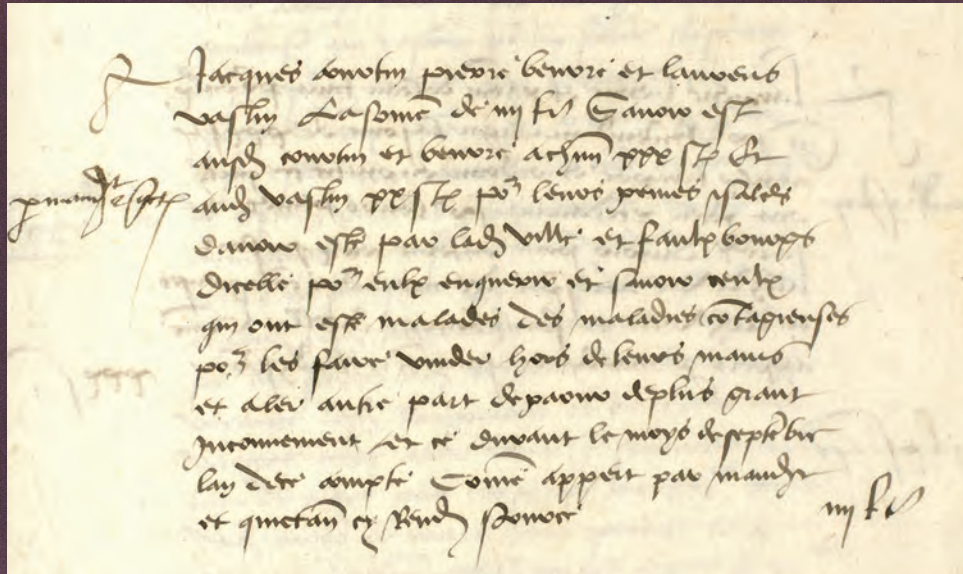 A Jacques convotin pierre bevore et lauvens
vaslin La some de iiij lt Savoir est
ausd convotin et bevore a chun xxx st Et
aud vaslin xx st por leurs peines sales
davoir este par lad ville et faulxbourgs
dicelle por eulx enquerir et savoir ceulx
qui ont este malades des maladies contagieuses
por les faire vuider hors de leurs maisons
et aler autre part de paour de plus grant
Inconvenient Et ce durant le moys de septembre
lan de ce compte Come appert par mandt
et quictan cy Rend pour ce iiij lt
par mand et quict